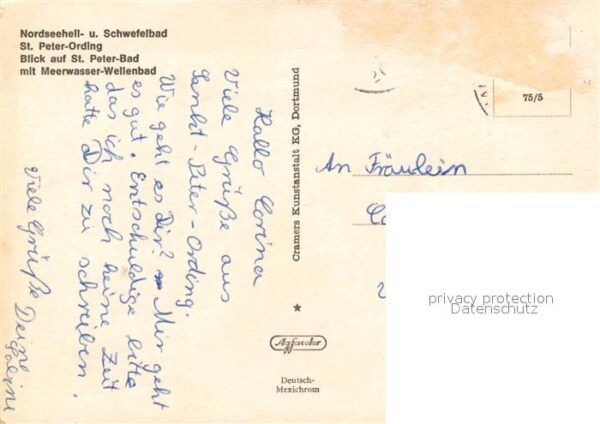 Nordseeheil- u. Schwefelbad
St. Peter-Ording
Blick auf St. Peter-Bad
mit Meerwasser-Wellenbad
Hallo Corina
Viele Grüße aus
Sankt-Peter-Ording.
Wie geht es Dir? Mir geht
es gut. Entschuldige bitte
das ich noch keine Zeit
hatte Dir zu schreiben.
Viele Grüße Deine
Cramers Kunstanstalt KG, Dortmund
★
Agfacolor
Deutsch-
Mexichrom
75/5
An Fräulein
Co
privacy protection
Datenschutz